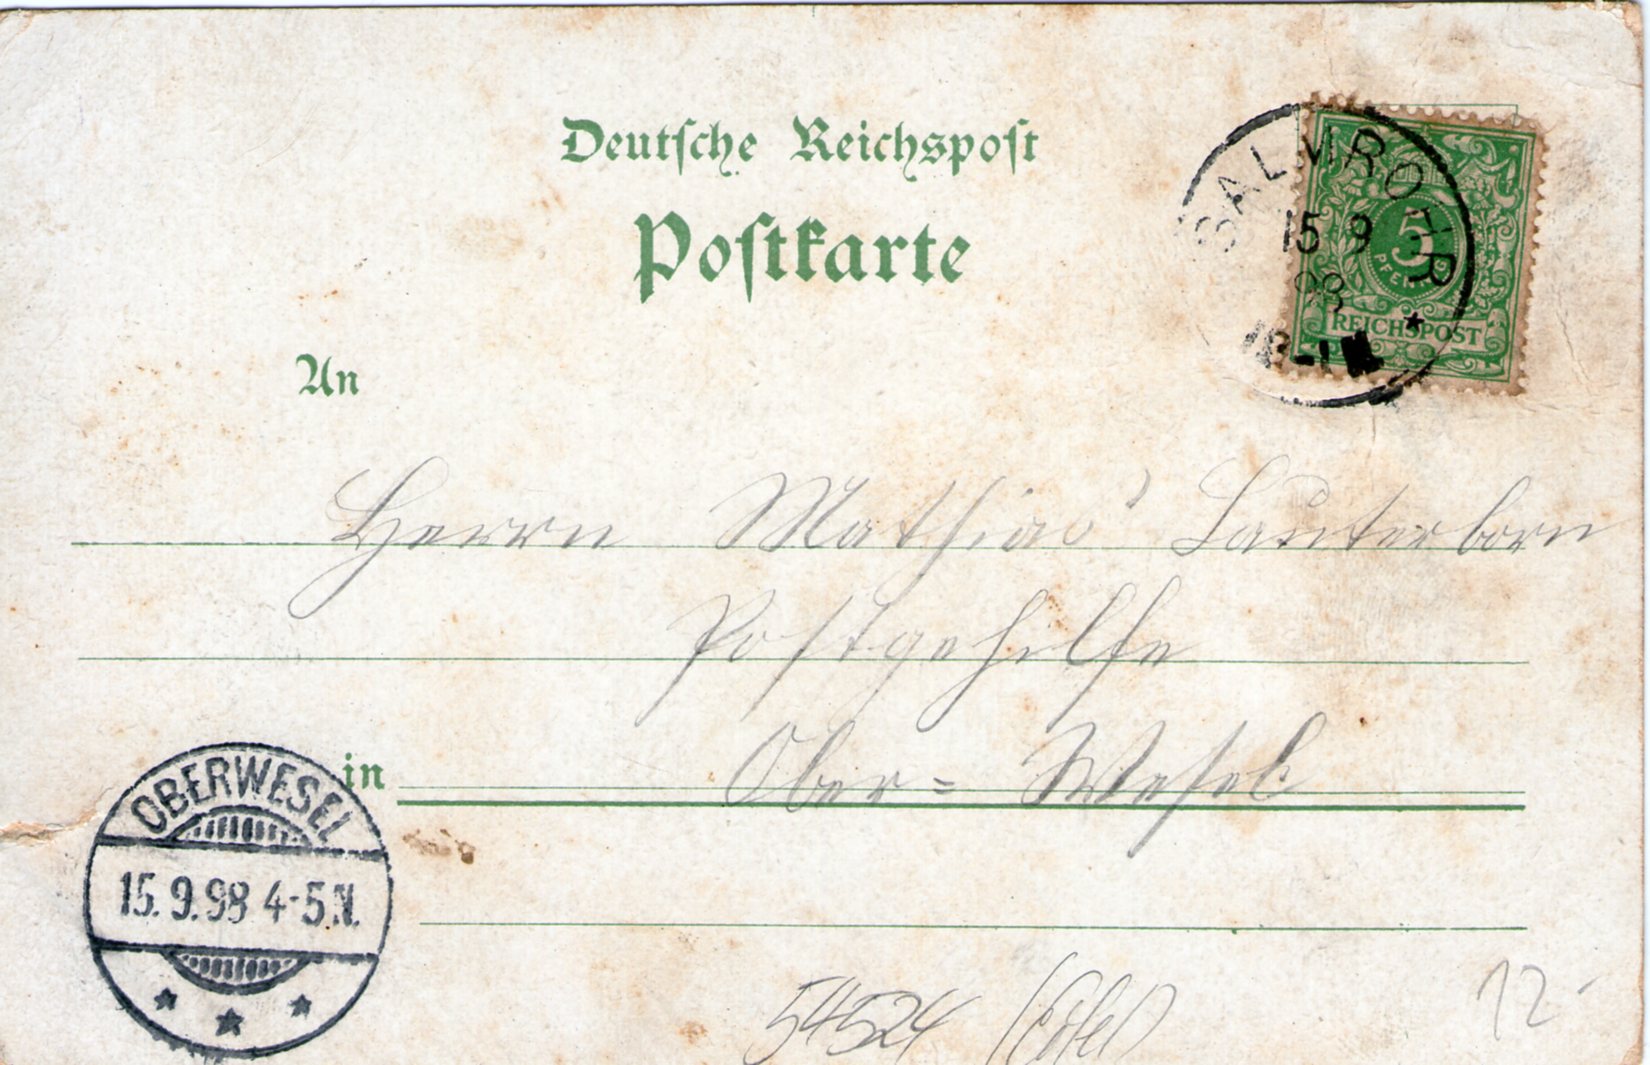 Deutsche Reichspost
Postkarte
SALMROHR
15 9
98
12-1 N
5
PFENNIG
REICHSPOST
An
Herrn Mathias Lauterborn
Postgehilfe
in Ober=Wesel
OBERWESEL
15.9.98 4-5 N.
54524
12-